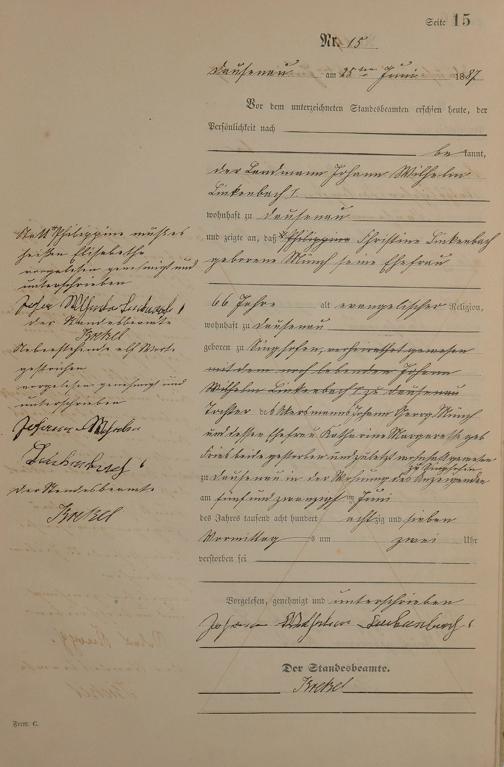 Seite 15
Nr. 15
Dausenau am 25ten Juni 1887
Vor dem unterzeichneten Standesbeamten erschien heute, der
Persönlichkeit nach
be kannt,
der Landmann Johann Wilhelm
Linkenbach I
wohnhaft zu Dausenau
und zeigte an, daß Philippine Christine Linkenbach
geborene Münch seine Ehefrau
66 Jahre alt evangelischer Religion,
wohnhaft zu Dausenau
geboren zu Singhofen, verheirathet gewesen
mit dem noch lebenden Johann
Wilhelm Linkenbach I zu Dausenau
Tochter des Ackersmanns Johann Georg Münch
und dessen Ehefrau Katharine Margarethe geb
beide gestorben und zuletzt wohnhaft gewesen
zu Singhofen
zu Dausenau in der Wohnung des Anzeigenden
am fünfundzwanzigsten Juni
des Jahres tausend acht hundert achtzig und sieben
Vormittags um zwei Uhr
verstorben sei
Vorgelesen, genehmigt und unterschrieben
Johann Wilhelm Linkenbach I
Der Standesbeamte.
Krekel
Statt Philippine muß es
heißen Elisabethe
vorgelesen genehmigt und
unterschrieben
Johann Wilhelm Linkenbach I
der Standesbeamte
Krekel
Nebenstehende elf Worte
gestrichen
vorgelesen genehmigt und
unterschrieben
Johann Wilhelm
Linkenbach I
der Standesbeamte
Krekel
Form. C.